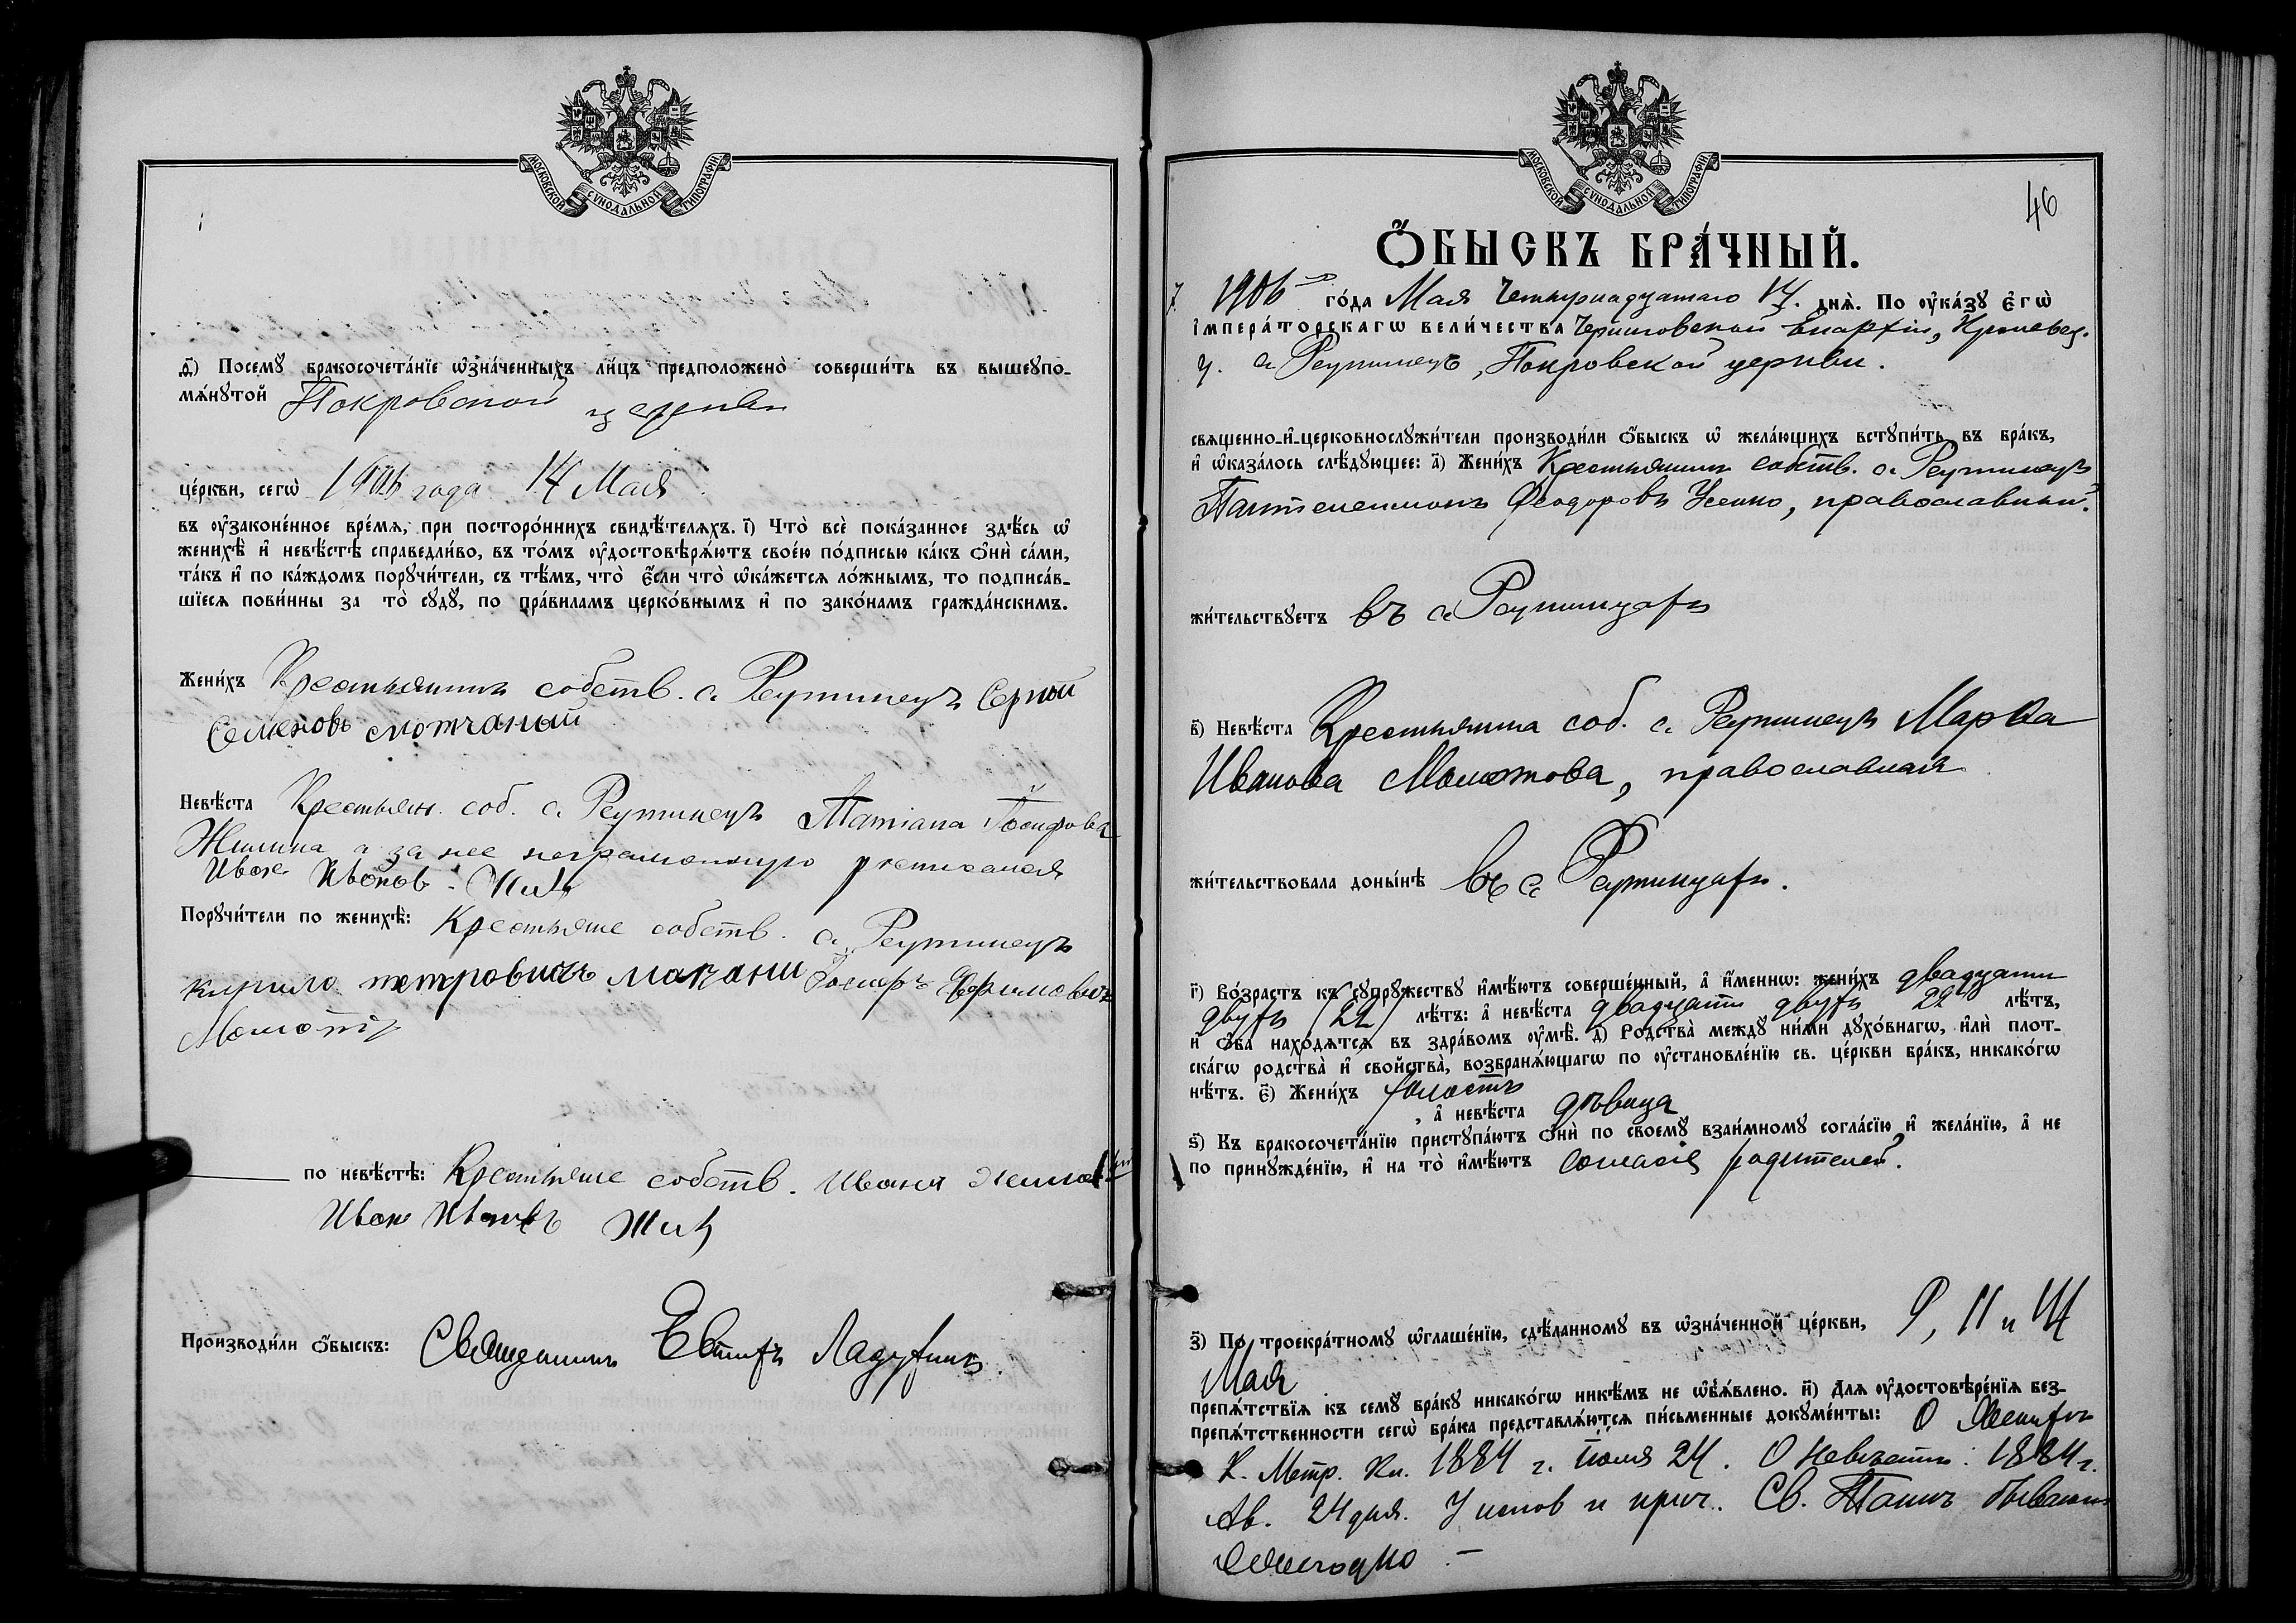 МОСКОВСКОЙ СѴНОДАЛЬНОЙ ТИПОГРАФІИ
ѳ҃) Посемꙋ бракосочета́нїе ѡ҆зна́ченныхъ ли́цъ предположено̀ соверши́ть въ вышеꙋпо-
мѧ́нꙋтой Покровской церкви
це́ркви, сегѡ̀ 1906 года 14 Мая
въ ᲂу҆законе́нное вре́мѧ, при посторо́ннихъ свидѣ́телѧхъ. і҃) Что̀ всѐ пока́занное здѣ́сь ѡ҆
женихѣ̀ и҆ невѣ́стѣ справедли́во, въ то́мъ ᲂу҆достовѣрѧ́ютъ свое́ю по́дписью ка́къ ѻ҆нѝ са́ми,
та́къ и҆ по ка́ждомъ порꙋчи́тели, съ тѣ́мъ, что̀ є҆́сли что̀ ѡ҆ка́жетсѧ ло́жнымъ, то подписа́в-
шїесѧ пови́нны за то̀ сꙋдꙋ̀, по пра́виламъ церко́внымъ и҆ по зако́намъ гражда́нскимъ.
Жени́хъ Крестьянинъ собств. с. Реутинецъ Сергий
Семеновъ
Невѣ́ста Крестьян. соб. с. Реутинецъ Татіана Іосифова
Жилина а за нее неграмотную росписался
Иван Иванов Жила
Порꙋчи́тели по женихѣ̀: Крестьяне собств. с. Реутинецъ
Кирило петровичъ Іосифъ
по невѣ́стѣ: Крестьяне собств. Иванъ
Иван Ивановъ Жила
Производи́ли ѻ҆́быскъ: Священникъ Евтихъ Ладухинъ
МОСКОВСКОЙ СѴНОДАЛЬНОЙ ТИПОГРАФІИ
46
Ѻ҆́БЫСКЪ БРА́ЧНЫЙ.
7 1906 го́да Мая Четырнадцатаго 14. днѧ̀. По ᲂу҆ка́зꙋ є҆гѡ̀
і҆мпера́торскагѡ вели́чества Черниговской Епархіи, Кролевец.
у. с. Реутинецъ, Покровской церкви.
свѧщенно-и҆-церковнослꙋжи́тели производи́ли ѻ҆́быскъ ѡ҆ жела́ющихъ встꙋпи́ть въ бра́къ,
и҆ ѡ҆каза́лось слѣ́дꙋющее: а҃) Жени́хъ Крестьянинъ собств. с. Реутинецъ
Пантелеимонъ Феодоровъ Усенко, православный.
жи́тельствꙋетъ въ с. Реутинцахъ
в҃) Невѣ́ста Крестьянка соб. с. Реутинецъ Марѳа
Иванова Молотова, православная
жи́тельствовала доны́нѣ въ с. Реутинцахъ.
г҃) Во́зрастъ къ сꙋпрꙋ́жествꙋ и҆мѣ́ютъ соверше́нный, а҆ и҆́меннѡ: жени́хъ двадцати
двухъ (22) лѣ́тъ: а҆ невѣ́ста двадцати двухъ 22 лѣ́тъ,
и҆ ѻ҆́ба нахо́дѧтсѧ въ здра́вомъ ᲂу҆мѣ̀. д҃) Родства̀ междꙋ̀ ни́ми дꙋхо́внагѡ, и҆лѝ плот-
ска́гѡ родства̀ и҆ сво́йства̀, возбранѧ́ющагѡ по ᲂу҆становле́нїю св. це́ркви бра́къ, никако́гѡ
нѣ́тъ. є҃) Жени́хъ холостъ
, а҆ невѣ́ста дѣвица
ѕ҃) Къ бракосочета́нїю пристꙋпа́ютъ ѻ҆нѝ по своемꙋ̀ взаи́мномꙋ согла́сїю и҆ жела́нїю, а҆ не
по принꙋжде́нїю, и҆ на то̀ и҆мѣ́ютъ согласіе родителей.
з҃) По троекра́тномꙋ ѡ҆глаше́нїю, сдѣ́ланномꙋ въ ѡ҆зна́ченной це́ркви, 9, 11 и 14
Мая
препѧ́тствїѧ къ семꙋ̀ бра́кꙋ никако́гѡ никѣ́мъ не ѡ҆б̾ѧ́влено. и҃) Длѧ ᲂу҆достовѣре́нїѧ без-
препѧ́тственности сегѡ̀ бра́ка представлѧ́ютсѧ пи́сьменные докꙋме́нты: О Женихѣ
К. Метр. кн. 1884 г. Іюля 24. О Невѣстѣ: 1884 г.
Ав. 24 дня. У испов и прич. Св. Таинъ бываютъ
ежегодно. –